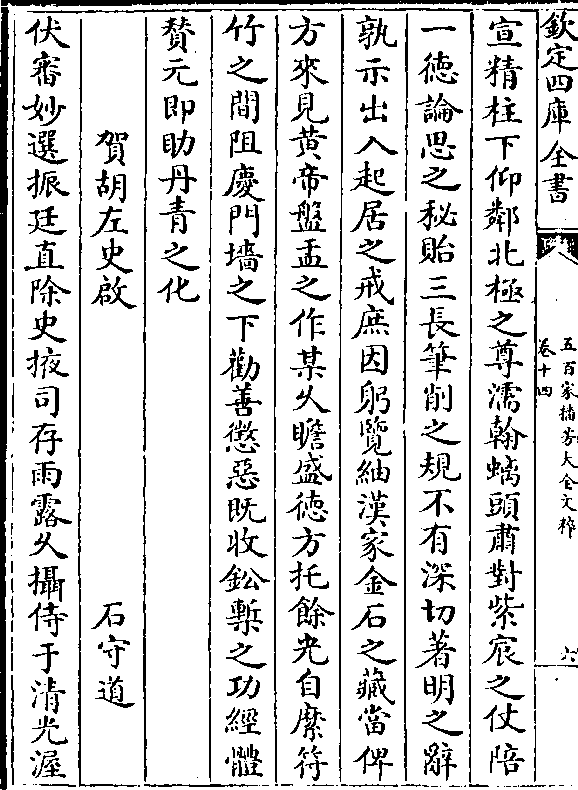 欽定四庫全書
五百家播芳大全文粹
卷十四
六
宣精柱下仰鄰北極之尊濡翰螭頭肅對紫宸之仗陪
一徳論思之秘貽三長筆削之規不有深切著明之辭
孰示出入起居之戒庶因躬覽紬漢家金石之藏當俾
方來見黄帝盤盂之作某乆瞻盛徳方托餘光自縻符
竹之間阻慶門墻之下勸善懲惡既收鉛槧之功經體
贊元即助丹青之化
賀胡左史啟
石守道
伏審妙選振廷直除史掖司存雨露乆攝侍于清光渥